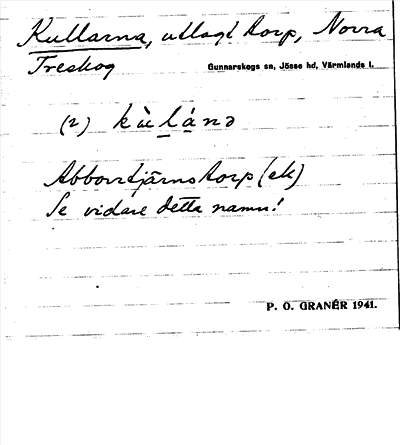 Kullarna, utlagt torp, Norra
Treskog
Gunnarskogs sn, Jösse hd, Värmlands l.
(2) kùlánə
Abborrtjärnstorp (ek)
Se vidare detta namn!
P. O. GRANÉR 1941.